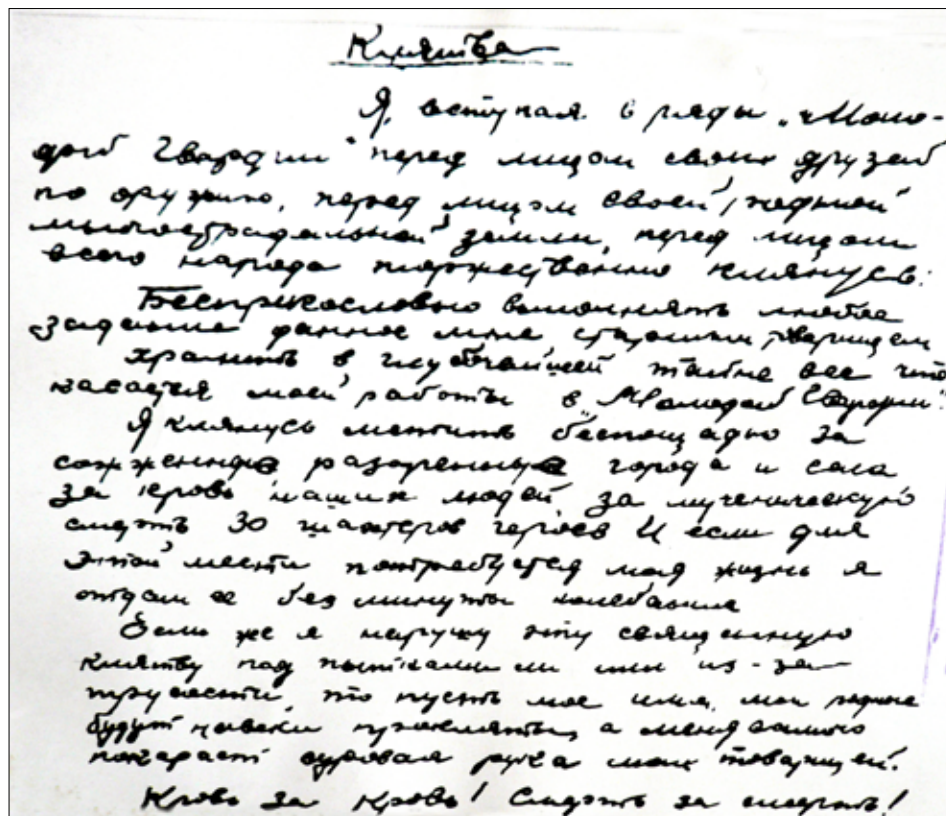 Клятва
Я, вступая в ряды „Моло-
дой Гвардии" перед лицом своих друзей
по оружию, перед лицом своей родной
многострадальной земли, перед лицом
всего народа торжественно клянусь:
Беспрекословно выполнять любое
задание данное мне старшим товарищем
хранить в глубочайшей тайне все что
касается моей работы в „Молодой Гвардии".
Я клянусь мстить беспощадно за
сожженные разоренные города и села
за кровь наших людей за мученическую
смерть 30 шахтеров героев И если для
этой мести потребуется моя жизнь я
отдам ее без минуты колебания
Если же я нарушу эту священную
клятву под пытками ли или из-за
трусости, то пусть мое имя, мои родные
будут навеки прокляты, а меня самого
покарает суровая рука моих товарищей.
Кровь за кровь! Смерть за смерть!